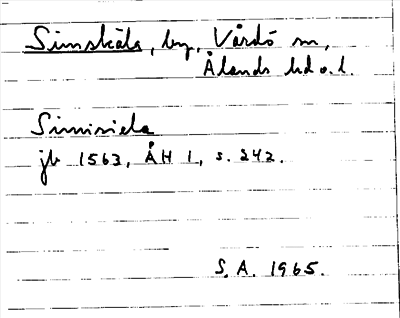 Simskäla, by, Vårdö sn,
Ålands hd o. l.
Simisiela
jb 1563, ÅH 1, s. 242.
S. A. 1965.